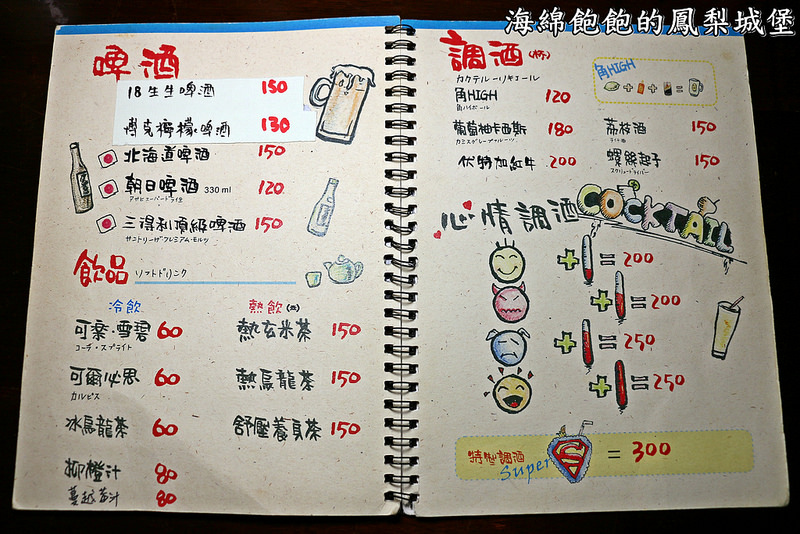 海綿飽飽的鳳梨城堡
啤酒
18生生啤酒 150
博克檸檬啤酒 130
北海道啤酒 150
朝日啤酒 330 ml 120
アサヒスーパードライ生
三得利頂級啤酒 150
サントリーザプレミアム・モルツ
飲品 ソフトドリンク
冷飲
可樂・雪碧 60
コーラ・スプライト
可爾必思 60
カルピス
冰烏龍茶 60
柳橙汁 80
蔓越莓汁 80
熱飲(壺)
熱玄米茶 150
熱烏龍茶 150
舒壓養身茶 150
調酒(杯)
カクテル・リキュール
角HIGH 120
角ハイボール
葡萄柚卡西斯 180
カシスグレープフルーツ
伏特加紅牛 200
角HIGH
+ + =
荔枝酒 150
ライチ酒
螺絲起子 150
スクリュードライバー
心情調酒
COCKTAIL
+ = 200
+ = 200
+ = 250
+ = 250
特製調酒 Super S = 300